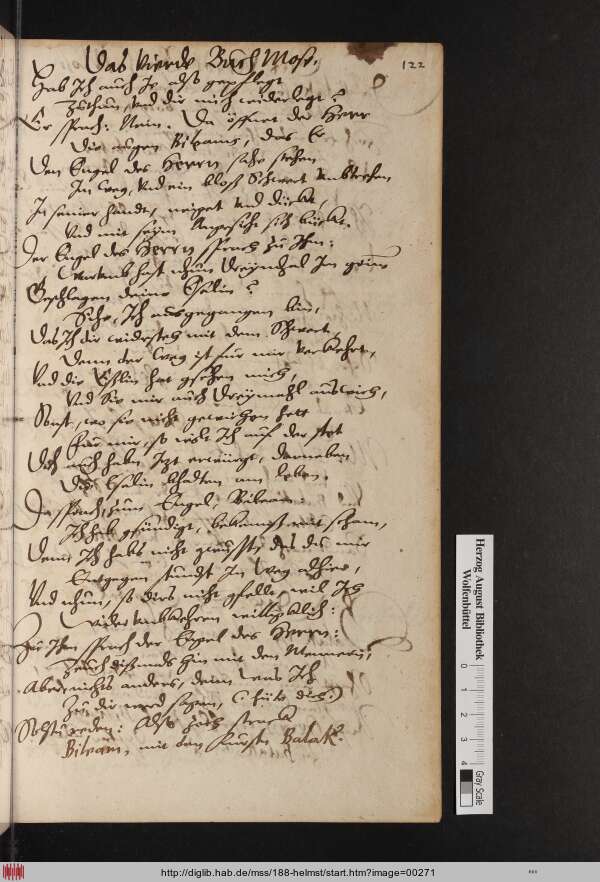 Das Vierde Buch Mose.
122
Hab Ich auch Je also gepflegt
Zuthun, Und dir mich widerlegt?
Er sprach: Nein. Da öffnet der Herr
Die augen Bileams, das Er
Den Engel des Herrn sahe stehen
Im weg, Und ein bloß Schwert
In seiner handt, neiget Und bückt,
Und mit seim Angesicht sich bückt.
Der Engel des Herrn sprach zu Ihm:
Warumb hast nhun Dreymhal Im grim
Geschlagen deine Eselin?
Sihe, Ich ausgegangen bin,
Das Ich dir widersteh mit dem Schwert,
Denn der Weg ist für mir Verkehrt,
Und die Eslin hat gsehen mich,
Und Sie mir auch Dreymahl auswich,
Sonst, wo sie nicht gewichen hett
Für mir, so wolt Ich auf der stet
Dich auch haben Jzt erwürgt, darneben
Die Eselin bhalten am leben.
Da sprach zum Engel, Bileam:
Ich hab gsündigt, bekenns mit scham,
Denn Ich habs nicht gewusst, das du mir
Entgegen stundst Im Weg alhier,
Und nhun, so dirs nicht gfelle, wil Ich
wider umbkehren williglich:
Zu Ihm sprach der Engel des Herrn:
Zeuch hin mit den Mennern;
Aber nichts anders, denn was Ich
Zu dir werd sagen, (hüte dich)
Solstu reden: Also zoch
Bileam, mit den Fürsten Balak.
Herzog August Bibliothek
Wolfenbüttel
0 1 2 3 4
Gray Scale
http://diglib.hab.de/mss/188-helmst/start.htm?image=00271